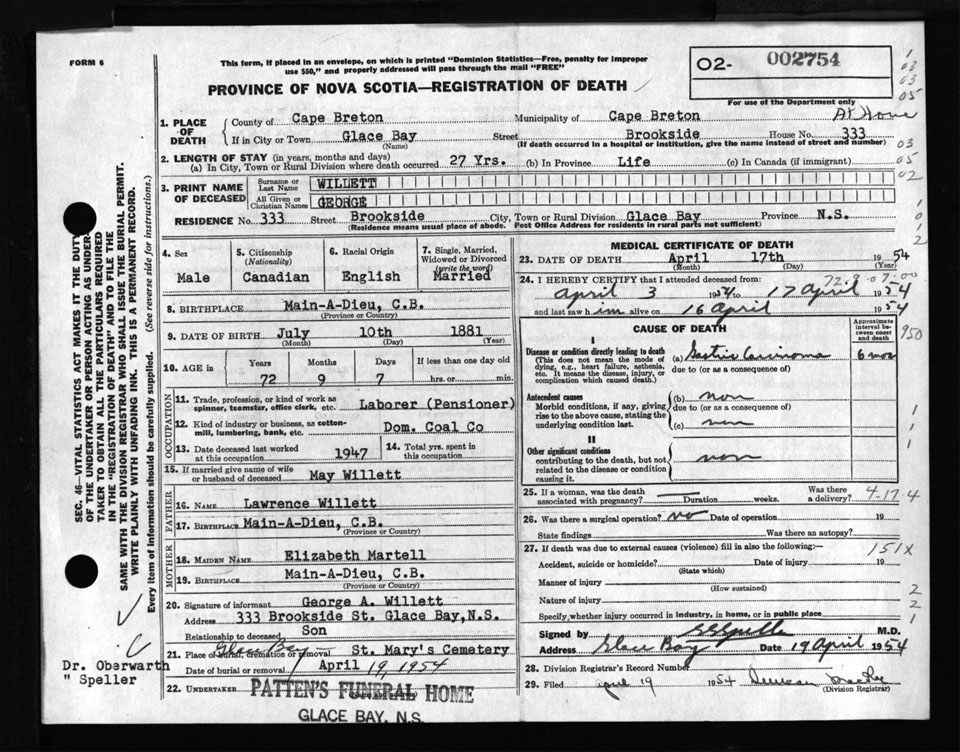 FORM 6
This form, if placed in an envelope, on which is printed "Dominion Statistics—Free, penalty for improper
use $50," and properly addressed will pass through the mail "FREE"
PROVINCE OF NOVA SCOTIA—REGISTRATION OF DEATH
02- 002754
For use of the Department only
1. PLACE OF DEATH
County of Cape Breton Municipality of Cape Breton At Home
If in City or Town Glace Bay Street Brookside House No. 333
(Name) (If death occurred in a hospital or institution, give the name instead of street and number)
2. LENGTH OF STAY (in years, months and days)
(a) In City, Town or Rural Division where death occurred 27 Yrs. (b) In Province Life (c) In Canada (if immigrant)
3. PRINT NAME OF DECEASED
Surname or Last Name WILLETT
All Given or Christian Names GEORGE
RESIDENCE No. 333 Street Brookside City, Town or Rural Division Glace Bay Province N.S.
(Residence means usual place of abode. Post Office Address for residents in rural parts not sufficient)
4. Sex Male
5. Citizenship (Nationality) Canadian
6. Racial Origin English
7. Single, Married, Widowed or Divorced (write the word) Married
8. BIRTHPLACE Main-A-Dieu, C.B.
(Province or Country)
9. DATE OF BIRTH July 10th 1881
(Month) (Day) (Year)
10. AGE in Years Months Days If less than one day old
72 9 7 hrs. or min.
OCCUPATION
11. Trade, profession, or kind of work as spinner, teamster, office clerk, etc. Laborer (Pensioner)
12. Kind of industry or business, as cotton-mill, lumbering, bank, etc. Dom. Coal Co
13. Date deceased last worked at this occupation 1947
14. Total yrs. spent in this occupation
15. If married give name of wife or husband of deceased May Willett
FATHER
16. NAME Lawrence Willett
17. BIRTHPLACE Main-A-Dieu, C.B.
(Province or Country)
MOTHER
18. MAIDEN NAME Elizabeth Martell
19. BIRTHPLACE Main-A-Dieu, C.B.
(Province or Country)
20. Signature of informant George A. Willett
Address 333 Brookside St. Glace Bay, N.S.
Relationship to deceased Son
21. Place of burial, cremation or removal Glace Bay St. Mary's Cemetery
Date of burial or removal April 19, 1954
22. UNDERTAKER PATTEN'S FUNERAL HOME
GLACE BAY, N.S.
MEDICAL CERTIFICATE OF DEATH
23. DATE OF DEATH April 17th 1954
(Month) (Day) (Year)
24. I HEREBY CERTIFY that I attended deceased from:
April 3 1954 to 17 April 1954
and last saw him alive on 16 April 1954
CAUSE OF DEATH
Approximate interval between onset and death
I
Disease or condition directly leading to death
(This does not mean the mode of dying, e.g., heart failure, asthenia, etc. It means the disease, injury, or complication which caused death.)
(a) Gastric Carcinoma 6 mos
due to (or as a consequence of)
Antecedent causes
Morbid conditions, if any, giving rise to the above cause, stating the underlying condition last.
(b) non
due to (or as a consequence of)
(c) non
II
Other significant conditions
contributing to the death, but not related to the disease or condition causing it.
non
25. If a woman, was the death associated with pregnancy? Duration weeks. Was there a delivery?
4-17-4
26. Was there a surgical operation? no Date of operation 19
State findings Was there an autopsy?
27. If death was due to external causes (violence) fill in also the following:—
151X
Accident, suicide or homicide? Date of injury 19
(State which)
Manner of injury
(How sustained)
Nature of injury
Specify whether injury occurred in industry, in home, or in public place
Signed by M.D.
Address Glace Bay Date 19 April 1954
28. Division Registrar's Record Number
29. Filed April 19 1954 Duncan
(Division Registrar)
SEC. 46—VITAL STATISTICS ACT MAKES IT THE DUTY
OF THE UNDERTAKER OR PERSON ACTING AS UNDER-
TAKER TO OBTAIN ALL THE PARTICULARS REQUIRED
IN THE "REGISTRATION OF DEATH" AND TO FILE THE
SAME WITH THE DIVISION REGISTRAR WHO SHALL ISSUE THE BURIAL PERMIT.
WRITE PLAINLY WITH UNFADING INK. THIS IS A PERMANENT RECORD.
Every item of information should be carefully supplied. (See reverse side for instructions.)
Dr. Oberwarth
" Speller
1
03
03
05
03
05
02
1
0
1
2
950
1
1
1
2
2
1